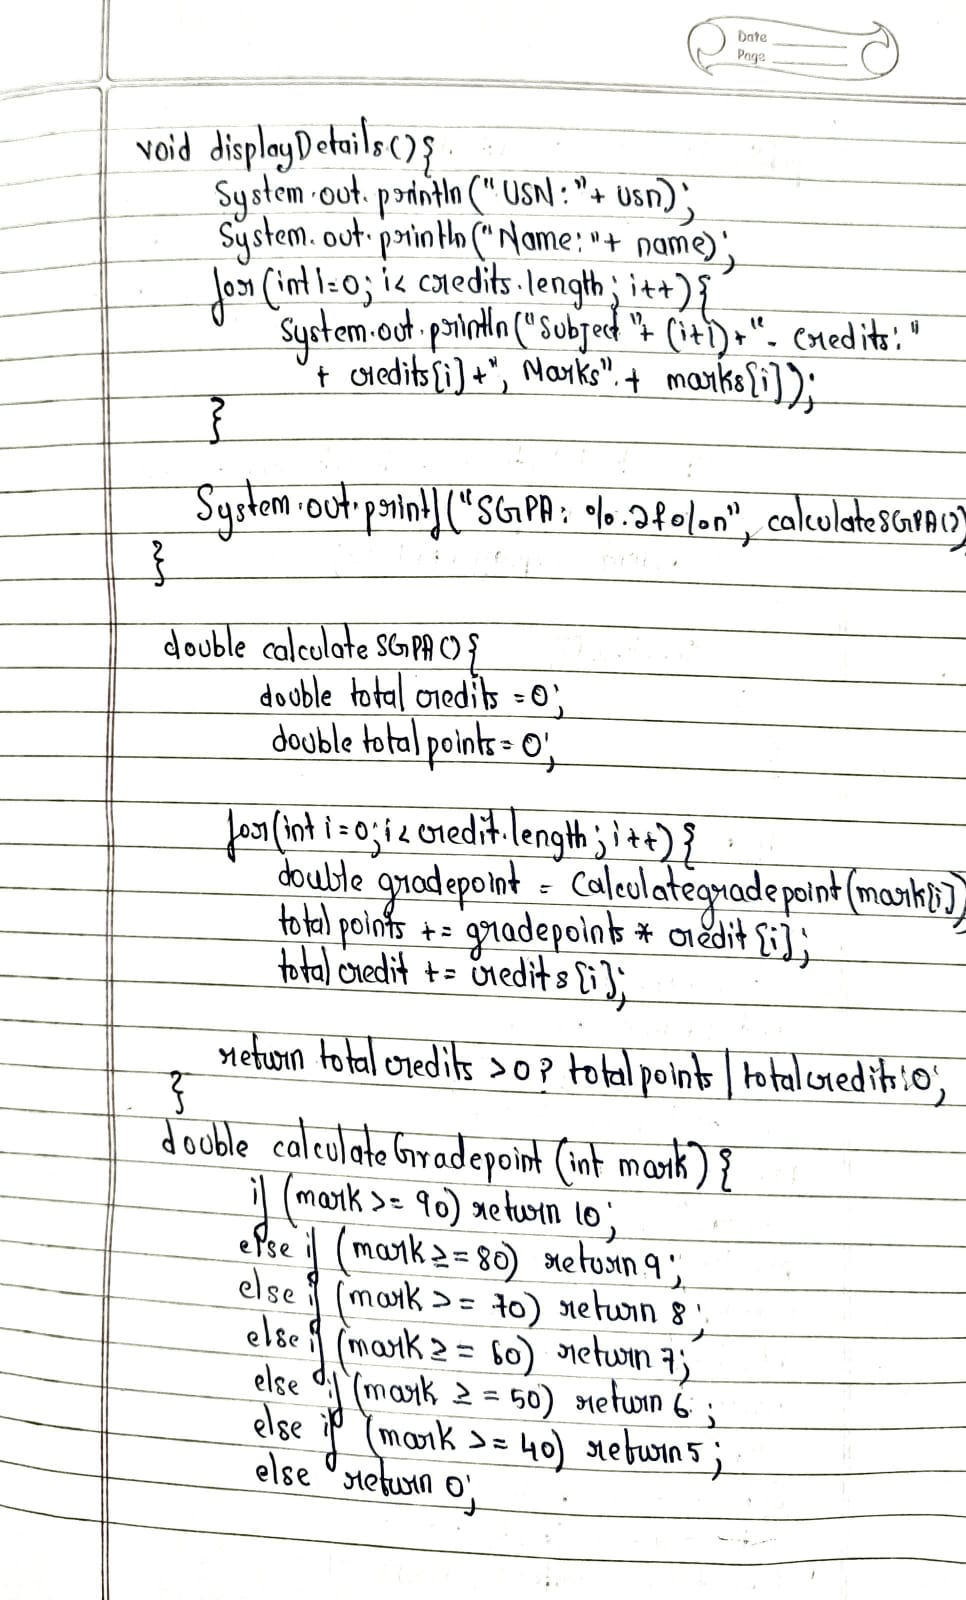 Date
Page
void displayDetails(){
System.out.println("USN:"+ usn);
System.out.println("Name:"+ name);
for(int i=0; i< credits.length; i++){
System.out.println("Subject "+ (i+1)+"- Credits:"
+ credits[i] +", Marks". + marks[i]);
}
System.out.printf("SGPA: %.2f%n", calculateSGPA())
}
double calculateSGPA(){
double total credits = 0;
double total points = 0;
for(int i=0; i< credit.length; i++){
double gradepoint = Calculategradepoint(mark[i])
total points += gradepoints * credit[i];
total credit += credits[i];
return total credits >0? total points / total credits:0;
}
double calculateGradepoint (int mark) {
if (mark >= 90) return 10;
else if (mark >= 80) return 9;
else if (mark >= 70) return 8;
else if (mark >= 60) return 7;
else if (mark >= 50) return 6;
else if (mark >= 40) return 5;
else return 0;